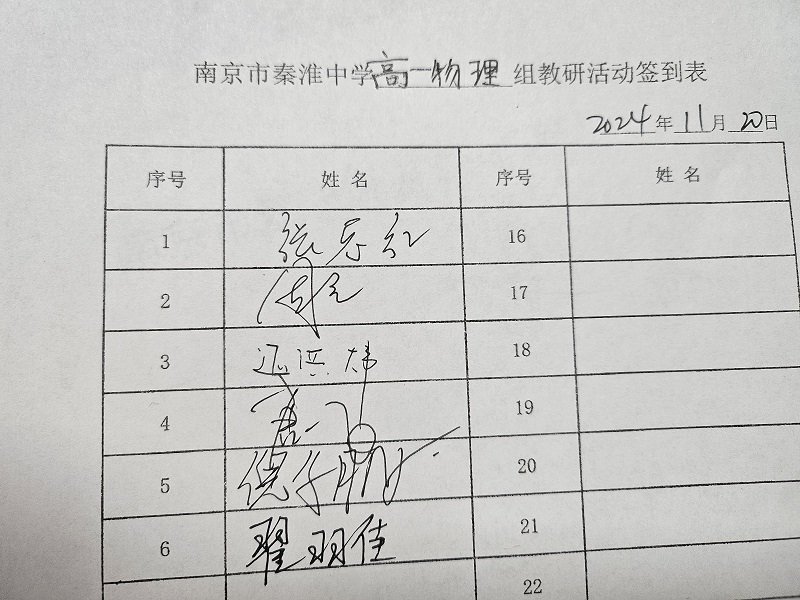 南京市秦淮中学高一物理组教研活动签到表
2024年11月20日
序号 姓名 序号 姓名
1 张 红 16
2 周 17
3 洪 18
4 19
5 倪 20
6 翟羽佳 21
22